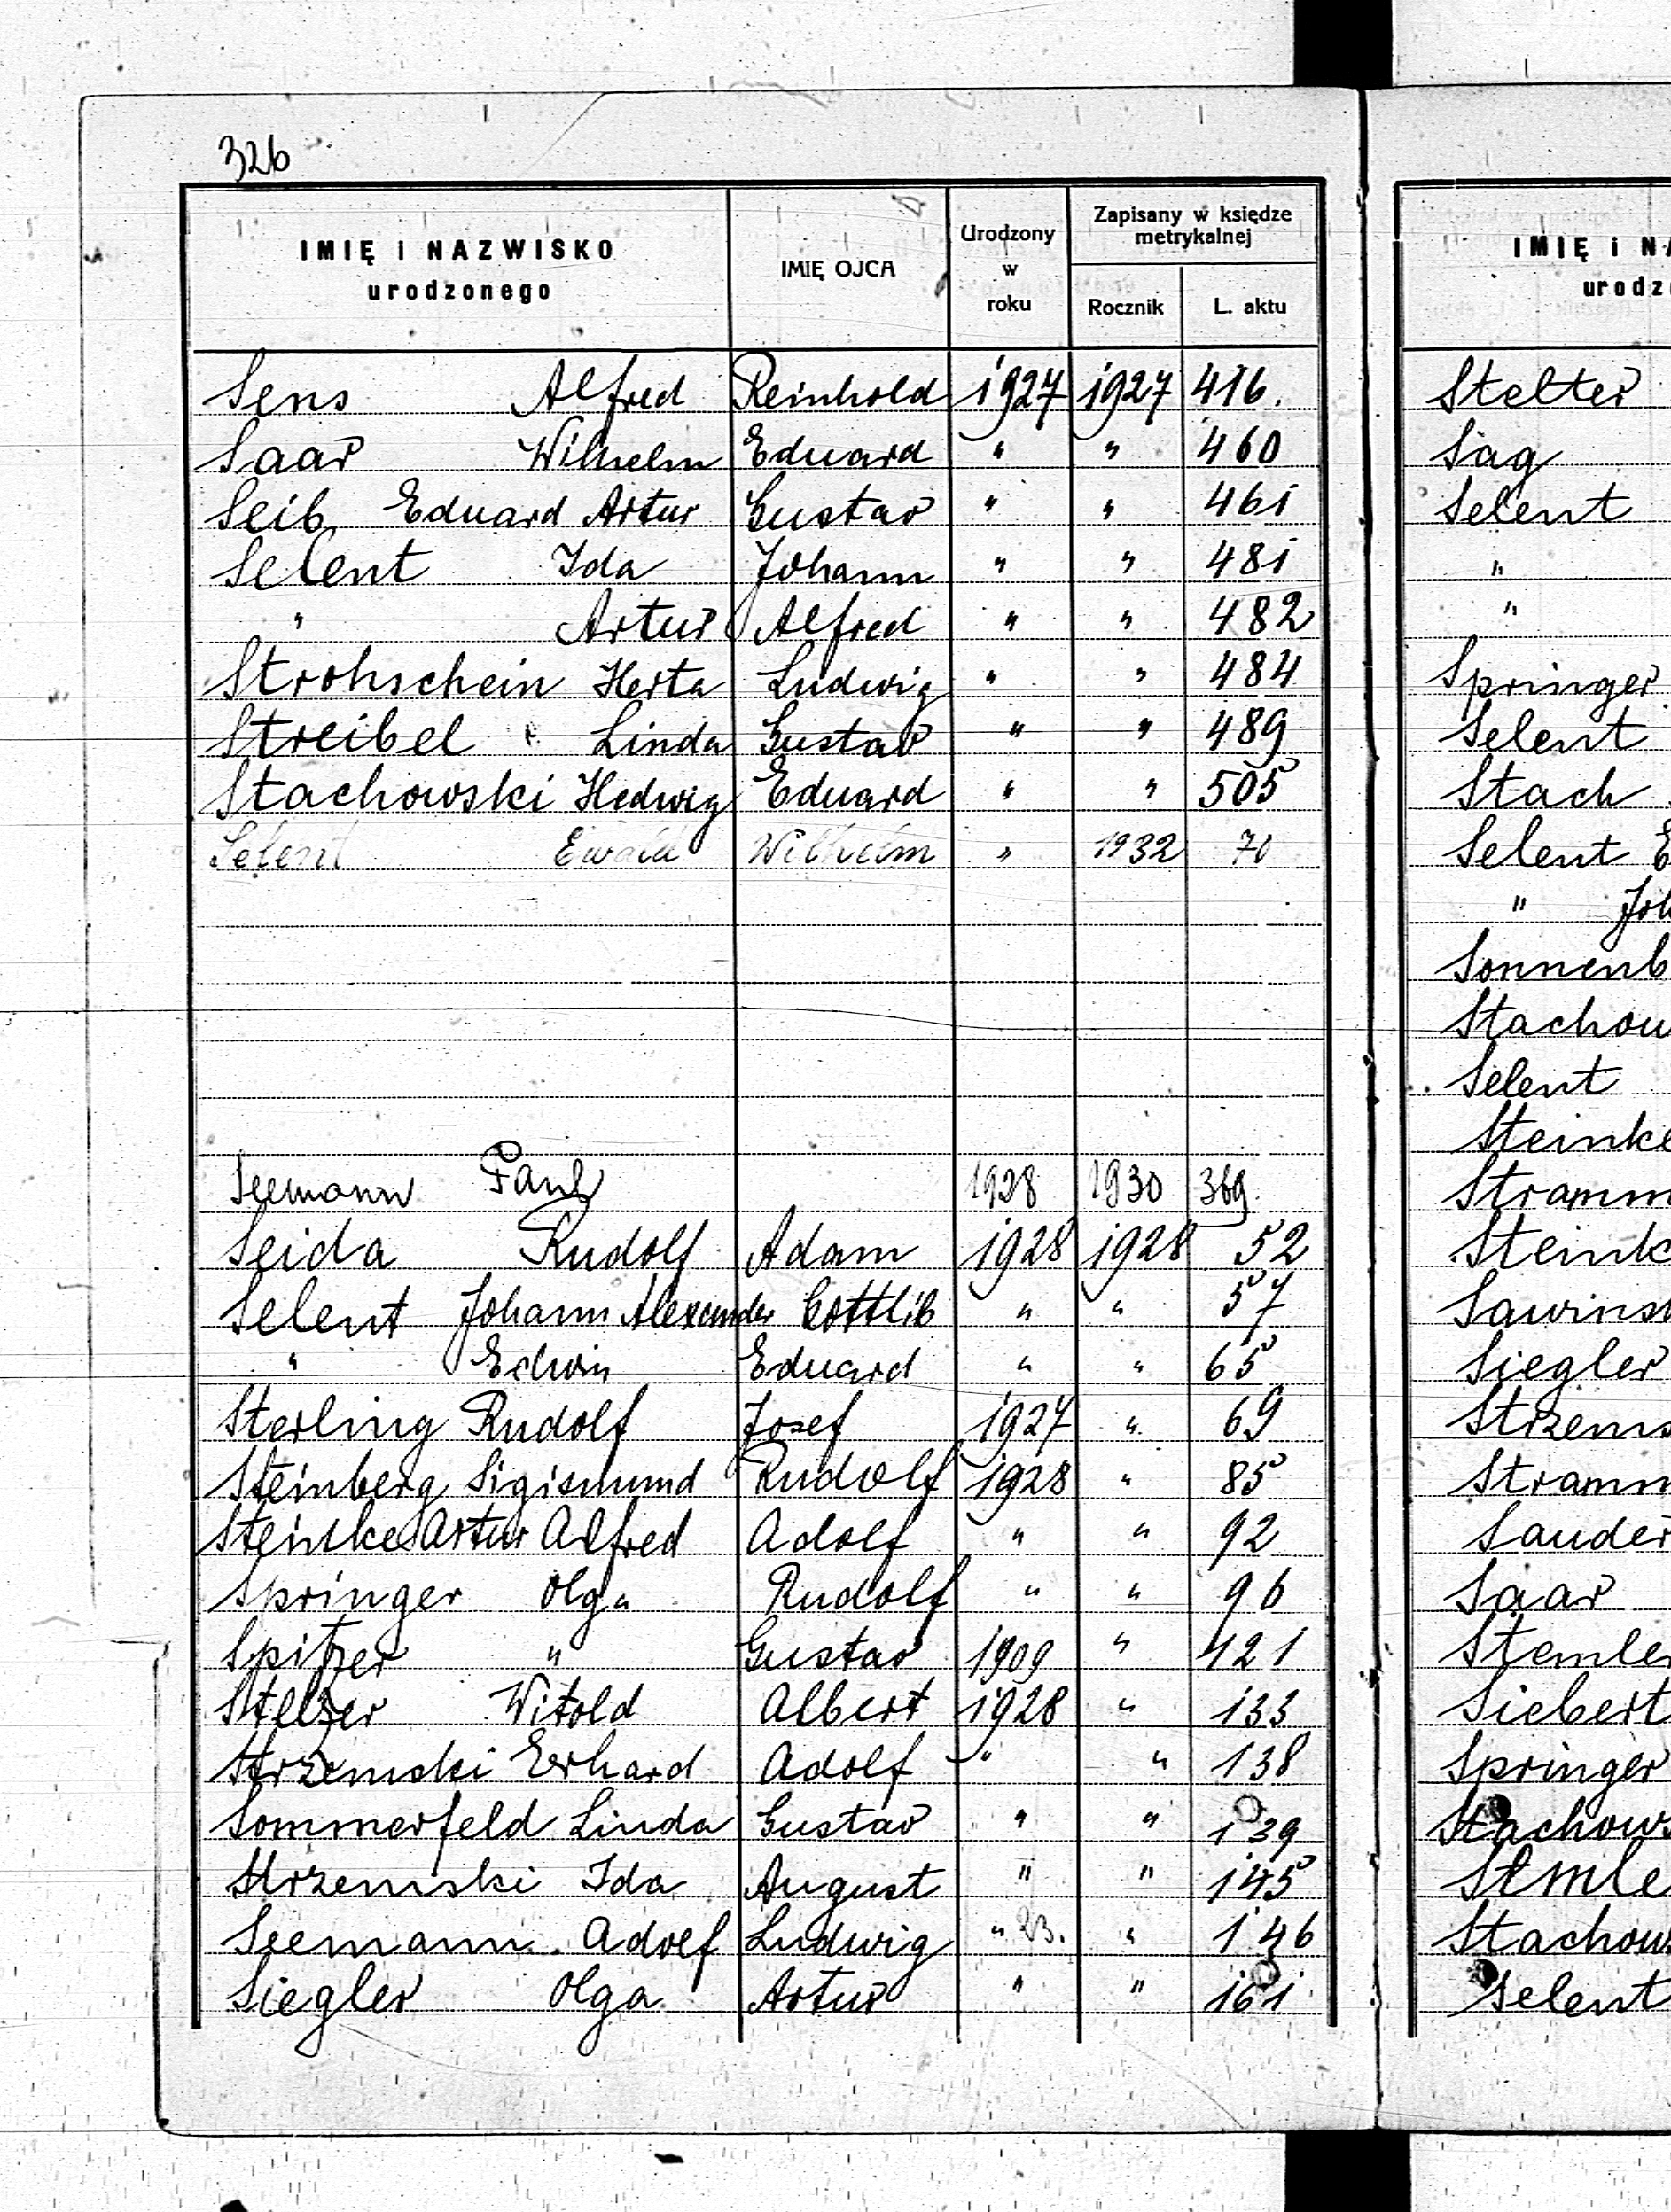 326
IMIĘ i NAZWISKO urodzonego | IMIĘ OJCA | Urodzony w roku | Zapisany w księdze metrykalnej
Rocznik | L. aktu
Sens Alfred | Reinhold | 1927 | 1927 | 416.
Saar Wilhelm | Eduard | " | " | 460
Seib Eduard Artur | Gustav | " | " | 461
Selent Ida | Johann | " | " | 481
" Artur | Alfred | " | " | 482
Strohschein Herta | Ludwig | " | " | 484
Streibel Linda | Gustav | " | " | 489
Stachowski Hedwig | Eduard | " | " | 505
Selent Ewald | Wilhelm | " | 1932 | 70
Seemann Paul | 1928 | 1930 | 369
Seida Rudolf | Adam | 1928 | 1928 | 52
Selent Johann Alexander | Gottlib | " | " | 57
" Edwin | Eduard | " | " | 65
Sterling Rudolf | Josef | 1927 | " | 69
Steinberg Sigismund | Rudolf | 1928 | " | 85
Steinke Artur Alfred | Adolf | " | " | 92
Springer Olga | Rudolf | " | " | 96
Spitzer " | Gustav | 1909 | " | 121
Stelzer Witold | Albert | 1928 | " | 133
Strzemski Erhard | Adolf | " | " | 138
Sommerfeld Linda | Gustav | " | " | 139
Strzemski Ida | August | " | " | 145
Seemann Adolf | Ludwig | " 23. | " | 146
Siegler Olga | Artur | " | " | 161
IMIĘ i NA
urodz
Stelter
Sag
Selent
"
"
Springer
Selent
Stach
Selent E
" Joh
Sonnenb
Stachow
Selent
Steinke
Stramm
Steink
Sawins
Siegler
Strzems
Stramm
Sauder
Saar
Stemler
Siebert
Springer
Stachows
Stmle
Stachows
Selent